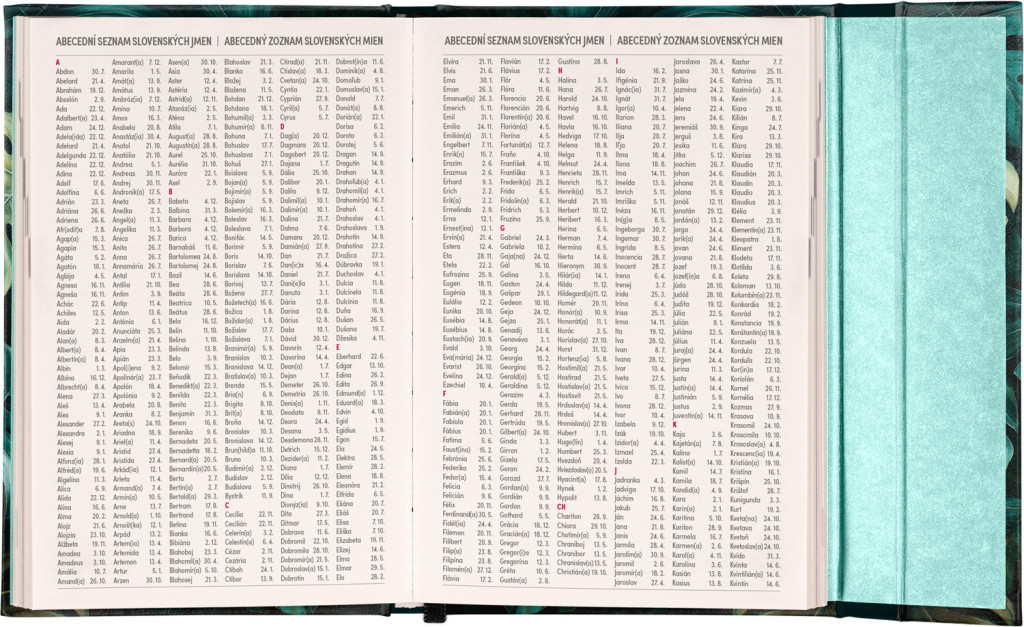 ABECEDNÍ SEZNAM SLOVENSKÝCH JMEN | ABECEDNÝ ZOZNAM SLOVENSKÝCH MIEN
A
Abdon 30. 7.
Abelard 21. 4.
Abrahám 19. 12.
Absolón 2. 9.
Ada 22. 12.
Adalbert(a) 23. 4.
Adam 24. 12.
Adela(ida) 22. 12.
Adelard 21. 4.
Adelgunda 22. 12.
Adelína 22. 12.
Adina 22. 12.
Adolf 17. 6.
Adolfína 6. 6.
Adrián 23. 3.
Adriána 26. 6.
Adriena 26. 6.
Afr(odit)a 7. 8.
Agap(a) 15. 3.
Agapia 15. 3.
Agáta 5. 2.
Agatón 10. 1.
Aglája 4. 5.
Agnesa 16. 11.
Agneša 16. 11.
Achác 22. 6.
Achiles 12. 5.
Aida 2. 2.
Aladár 20. 2.
Alan(a) 8. 3.
Albert(a) 8. 4.
Albertín(a) 8. 4.
Albín 1. 3.
Albína 16. 12.
Albrecht(a) 8. 4.
Alena 27. 3.
Aleš 13. 4.
Alex 9. 1.
Alexander 27. 2.
Alexandra 2. 1.
Alexej 9. 1.
Alexia 9. 1.
Alfonz(a) 28. 1.
Alfréd(a) 19. 6.
Algelína 11. 3.
Alica 6. 9.
Alida 22. 12.
Alína 16. 6.
Alma 20. 2.
Alojz 21. 6.
Alojzia 23. 10.
Alžbeta 19. 11.
Amadea 3. 10.
Amadeus 3. 10.
Amália 10. 7.
Amand(a) 26. 10.
Amarant(a) 7. 12.
Amarila 1. 5.
Amát(a) 13. 9.
Amátus 13. 9.
Ambróz(ia) 7. 12.
Amína 10. 7.
Amos 16. 3.
Anabela 20. 8.
Anastáz(ia) 30. 4.
Anatol 21. 10.
Anatólia 21. 10.
Andrea 5. 1.
Andreas 30. 11.
Andrej 30. 11.
Andronik(a) 17. 5.
Aneta 26. 7.
Anežka 2. 3.
Angel(a) 11. 3.
Angelika 11. 3.
Anica 26. 7.
Anita 26. 7.
Anna 26. 7.
Annamária 26. 7.
Antal 17. 1.
Antília 21. 10.
Antim 3. 9.
Antip 11. 4.
Anton 13. 6.
Antónia 6. 1.
Anunciáta 25. 3.
Anzelm(a) 21. 4.
Apia 23. 3.
Apián 23. 3.
Apol(l)ena 9. 2.
Apolinár(a) 23. 7.
Apolón 18. 4.
Apolónia 9. 2.
Arabela 20. 8.
Aranka 8. 2.
Areta(s) 24. 10.
Ariadna 18. 9.
Ariel(a) 11. 4.
Aristid 27. 4.
Aristída 27. 4.
Arkád(ia) 12. 1.
Arleta 11. 4.
Armand(a) 7. 4.
Armin(a) 10. 5.
Arne 13. 7.
Arnold(a) 1. 10.
Arnošt(ka) 12. 1.
Arpád 13. 2.
Artem(ia) 13. 4.
Artemida 13. 4.
Artemon 13. 4.
Artur 5. 1.
Arzen 30. 10.
Asen(a) 30. 10.
Asia 30. 4.
Aster 12. 4.
Astéria 12. 4.
Astrid(a) 12. 11.
Atanáz(ia) 2. 5.
Aténa 2. 5.
Atila 7. 1.
August(a) 28. 8.
Augustín(a) 28. 8.
Aurel 25. 10.
Aurélia 31. 10.
Auróra 22. 1.
Axel 2. 9.
B
Babeta 4. 12.
Balbína 31. 3.
Barbara 4. 12.
Barbora 4. 12.
Barica 4. 12.
Barnabáš 11. 6.
Bartolomea 24. 8.
Bartolomej 24. 8.
Bazil 14. 6.
Bea 28. 6.
Beáta 28. 6.
Beatrica 10. 5.
Beátus 28. 6.
Bela 16. 12.
Belín 11. 10.
Belína 1. 10.
Belinda 13. 8.
Belo 3. 9.
Belomír 15. 3.
Beňadik 22. 3.
Benedikt(a) 22. 3.
Benilda 22. 3.
Benita 22. 3.
Benjamín 31. 3.
Benon 16. 6.
Berenika 9. 6.
Bernadeta 20. 5.
Bernadetta 18. 2.
Bernard(a) 20. 5.
Bernardín(a) 20. 5.
Berta 2. 7.
Bertín(a) 2. 7.
Bertold(a) 29. 3.
Bertram 17. 8.
Bertrand 17. 8.
Betina 19. 11.
Bianka 16. 6.
Bibiána 2. 12.
Blahobej 23. 3.
Blahomil(a) 30. 4.
Blahomír(a) 5. 10.
Blahosej 21. 3.
Blahoslav 21. 3.
Blanka 16. 6.
Blažej 3. 2.
Blažena 11. 5.
Bohdan 21. 12.
Bohdana 18. 1.
Bohumil(a) 3. 3.
Bohumír(a) 8. 11.
Bohuna 7. 1.
Bohuslav 17. 7.
Bohuslava 7. 1.
Bohuš 27. 1.
Boislava 5. 9.
Bojan(a) 5. 9.
Bojimír(a) 5. 9.
Bojislav 5. 9.
Bolemír(a) 16. 3.
Boleslav 16. 3.
Boleslava 7. 1.
Bonifác 14. 5.
Borimír 5. 9.
Boris 14. 10.
Borislav 5. 9.
Borislava 14. 10.
Borivoj 13. 7.
Božena 27. 7.
Božetech(a) 16. 6.
Božica 1. 8.
Božidar(a) 1. 8.
Božislav 17. 7.
Božislava 7. 1.
Branimír(a) 5. 9.
Branislav 10. 3.
Branislava 14. 12.
Bratislav(a) 10. 3.
Brenda 15. 5.
Bria(n) 6. 9.
Brigita 8. 10.
Brit(a) 8. 10.
Broňa 14. 12.
Bronislav 10. 3.
Bronislava 14. 12.
Brun(hild)a 11. 10.
Bruno 10. 3.
Budimír(a) 2. 12.
Budislav 2. 12.
Budislava 5. 9.
Bystrík 11. 9.
C
Cecília 22. 11.
Cecilián 22. 11.
Celerín(a) 3. 2.
Celestín(a) 6. 4.
Cézar 2. 11.
Cezária 2. 11.
Ctiboh 24. 1.
Ctibor 13. 9.
Ctirad(a) 21. 11.
Ctislav(a) 18. 3.
Cvetan(a) 24. 10.
Cyntia 22. 1.
Cyprián 27. 9.
Cyril(a) 5. 7.
Cyrus 5. 7.
D
Dag(a) 20. 12.
Dagmara 20. 12.
Dagobert 20. 12.
Dajana 1. 7.
Dália 25. 10.
Dalibor 20. 1.
Dalila 9. 12.
Dalimil(a) 10. 1.
Dalimír(a) 10. 1.
Dalina 21. 7.
Dalma 7. 6.
Damara 20. 12.
Damián(a) 27. 9.
Dan 21. 7.
Dan(ic)a 16. 4.
Daniel 21. 7.
Dani(el)a 3. 1.
Danuta 3. 1.
Dária 12. 8.
Darina 12. 8.
Dárius 12. 8.
Daša 10. 1.
Dávid 30. 12.
Davorín 12. 4.
Davorína 14. 4.
Dean(a) 1. 7.
Dejan 1. 7.
Demeter 26. 10.
Demetria 26. 10.
Denis(a) 1. 11.
Deodata 9. 11.
Deora 24. 4.
Desana 3. 5.
Desdemona 28. 11.
Detrich 15. 12.
Dezider(a) 11. 2.
Diana 1. 7.
Dília 12. 8.
Dimitrij 26. 10.
Dina 1. 7.
Dionýz(ia) 9. 10.
Dita 27. 3.
Ditmar 17. 5.
Dobrava 11. 6.
Dobromil 22. 10.
Dobromila 28. 10.
Dobromír(a) 2. 1.
Dobroslav(a) 15. 1.
Dobrotín 15. 1.
Dobrot(ín)a 11. 6.
Dominik(a) 4. 8.
Domoľub 9. 1.
Domoslav(a) 15. 1.
Donald 7. 7.
Donát(a) 8. 8.
Dorián(a) 22. 1.
Dorisa 6. 2.
Dorota 6. 2.
Dorotej 5. 6.
Dragan 14. 9.
Dragutín 14. 9.
Drahan 14. 9.
Drahoľub(a) 4. 1.
Drahomil(a) 4. 1.
Drahomír(a) 16. 7.
Drahoň 4. 1.
Drahoslav 4. 1.
Drahoslava 1. 9.
Drahotín 14. 9.
Drahotína 27. 2.
Dražica 27. 2.
Dúbravka 19. 1.
Duchoslav 4. 1.
Dulcia 11. 8.
Dulcinela 11. 8.
Dulcínia 11. 8.
Duňa 16. 9.
Dušan 26. 5.
Dušana 19. 7.
Džesika 4. 11.
E
Eberhard 22. 6.
Edgar 13. 10.
Edina 26. 2.
Edita 26. 9.
Edmund(a) 1. 12.
Eduard(a) 18. 3.
Edvin 4. 10.
Egid 1. 9.
Egídius 1. 9.
Egon 15. 7.
Ela 24. 5.
Elektra 28. 5.
Elemír 28. 2.
Elena 28. 2.
Eleonóra 21. 2.
Elfrída 6. 5.
Eliána 20. 7.
Eliáš 20. 7.
Elisa 7. 10.
Eliška 7. 10.
Elizabeta 19. 11.
Elizej 14. 6.
Elma 28. 5.
Elmar 29. 5.
Elo 28. 2.
ABECEDNÍ SEZNAM SLOVENSKÝCH JMEN | ABECEDNÝ ZOZNAM SLOVENSKÝCH MIEN
Elvíra 21. 11.
Elvis 21. 6.
Ema 30. 1.
Eman 26. 3.
Emanuel(a) 26. 3.
Emerich 5. 11.
Emil 31. 1.
Emília 24. 11.
Emilián(a) 31. 1.
Engelbert 7. 11.
Enrik(a) 15. 7.
Erazim 2. 6.
Erazmus 2. 6.
Erhard 9. 3.
Erich 2. 2.
Erik(a) 2. 2.
Ermelinda 2. 9.
Erna 12. 1.
Ernest(ína) 12. 1.
Ervín(a) 21. 4.
Estera 12. 4.
Eta 28. 11.
Etela 22. 2.
Eufrozína 25. 9.
Eugen 18. 11.
Eugénia 18. 9.
Eulália 12. 2.
Eunika 20. 10.
Euzébia 14. 8.
Euzébius 14. 8.
Eustach(a) 20. 9.
Evald 3. 10.
Eva(mária) 24. 12.
Evarist 26. 10.
Evelína 24. 12.
Ezechiel 10. 4.
F
Fábia 20. 1.
Fabián(a) 20. 1.
Fabiola 20. 1.
Fábius 20. 1.
Fatima 5. 6.
Faust(ína) 15. 2.
Febrónia 25. 6.
Federika 25. 2.
Fedor(a) 15. 4.
Felícia 6. 3.
Felicián 9. 6.
Félix 20. 11.
Ferdinand(a) 30. 5.
Fidél(ia) 24. 4.
Filemon 20. 11.
Filibert 20. 9.
Filip(a) 23. 8.
Filipína 21. 9.
Filomén(a) 27. 12.
Flávia 17. 2.
Flavián 17. 2.
Flávius 17. 2.
Flór 4. 5.
Flóra 11. 6.
Florencia 20. 6.
Florencián 20. 6.
Florentín(a) 16. 10.
Florián(a) 4. 5.
Florína 4. 5.
Fortunát(a) 12. 7.
Fraňo 4. 10.
František 4. 10.
Františka 9. 3.
Frederik(a) 25. 2.
Frida 6. 5.
Fridolín(a) 6. 3.
Fridrich 5. 3.
Fruzína 25. 9.
G
Gabriel 24. 3.
Gabriela 10. 2.
Gaja(na) 24. 12.
Gál 16. 10.
Galina 3. 5.
Gaston 24. 4.
Gašpar 29. 1.
Gedeon 10. 10.
Geja 24. 12.
Gejza 25. 1.
Genadij 13. 6.
Genovéva 3. 1.
Georg 24. 4.
Georgia 15. 2.
Georgína 15. 2.
Gerald(a) 5. 12.
Geraldína 5. 12.
Gerazim 4. 3.
Gerda 19. 5.
Gerhard 28. 11.
Gertrúda 19. 5.
Gilbert(a) 24. 10.
Ginda 3. 3.
Girron 1. 2.
Gizela 17. 5.
Goran 24. 2.
Gorazd 27. 7.
Gordan(a) 9. 9.
Gordián 9. 9.
Gordon 9. 9.
Gothard 5. 5.
Grácia 18. 12.
Gracián(a) 18. 12.
Gregor 12. 3.
Gregor(i)a 12. 3.
Gregorína 12. 3.
Gréta 10. 6.
Gustáv(a) 2. 8.
Gustína 28. 8.
H
Halina 3. 5.
Hana 26. 7.
Harold 24. 10.
Hartvig 8. 8.
Havel 16. 10.
Havla 16. 10.
Hedviga 17. 10.
Helena 18. 8.
Helga 11. 9.
Helmut 24. 4.
Henrieta 28. 11.
Henrich 15. 7.
Henrik(a) 15. 7.
Herald 21. 10.
Herbert 10. 12.
Heribert 16. 3.
Herína 6. 5.
Herman 7. 4.
Hermína 6. 5.
Herta 14. 6.
Hieronym 30. 9.
Hilár(ia) 14. 1.
Hilda 11. 12.
Hildegard(a) 11. 12.
Homér 20. 11.
Honór(a) 10. 9.
Honorát(a) 11. 1.
Horác 3. 5.
Horislav(a) 27. 10.
Horst 31. 12.
Hortenz(ia) 5. 8.
Hostimil(a) 21. 5.
Hostirad 21. 5.
Hostislav(a) 21. 5.
Hostisvit 21. 5.
Hrdoslav(a) 14. 4.
Hrdoš 14. 4.
Hronislav(a) 27. 10.
Hubert 3. 11.
Hugo(lín) 1. 4.
Humbert 25. 3.
Hvezdoň 20. 4.
Hviezdoslav(a) 20. 5.
Hyacint(a) 17. 8.
Hynek 1. 2.
Hypolit 13. 8.
CH
Chariton 28. 9.
Chiara 29. 10.
Chotimír(a) 5. 9.
Chraniboj 13. 5.
Chranibor 13. 5.
Chranislav(a) 13. 5.
Christián(a) 19. 10.
I
Ida 16. 2.
Ifigénia 21. 9.
Ignác(ia) 31. 7.
Ignát 31. 7.
Igor(a) 10. 4.
Ilarion 28. 3.
Iliana 20. 7.
Iľja 20. 7.
Iľj(a) 20. 7.
Ilma 18. 4.
Ilona 18. 8.
Iľma 11. 4.
Imelda 13. 5.
Imrich 5. 11.
Imriška 5. 11.
Inéza 16. 11.
In(g)a 8. 5.
Ingeborga 30. 7.
Ingemar 30. 7.
Ingrida 8. 5.
Inocencia 28. 7.
Inocent 28. 7.
Irena 6. 4.
Irenej 3. 7.
Irida 25. 3.
Irína 6. 4.
Irisa 25. 3.
Irma 14. 11.
Ita 19. 12.
Iva 28. 12.
Ivan 8. 7.
Ivana 28. 12.
Ivar 10. 4.
Iveta 27. 5.
Ivica 15. 12.
Ivo 8. 7.
Ivona 28. 12.
Ivor 10. 4.
Izabela 9. 12.
Izák 19. 10.
Izidor(a) 4. 4.
Izmael 25. 4.
Izolda 22. 3.
J
Jadranka 4. 3.
Jadviga 17. 10.
Jáchim 16. 8.
Jakub 25. 7.
Ján 24. 6.
Jana 21. 8.
Janis 24. 6.
Jarmila 28. 4.
Jarolím(a) 30. 9.
Jaromil 2. 6.
Jaromír(a) 18. 2.
Jaroslav 27. 4.
Jaroslava 26. 4.
Jasna 30. 1.
Jaško 24. 6.
Jazmína 24. 2.
Jela 19. 4.
Jelena 22. 4.
Jens 24. 6.
Jeremiáš 30. 9.
Jerguš 3. 8.
Jesika 11. 6.
Jitka 5. 12.
Joachim 26. 7.
Johan 24. 6.
Johana 21. 8.
Jolana 15. 9.
Jonáš 12. 11.
Jonatán 29. 12.
Jordán(a) 13. 2.
Jorga 24. 4.
Jorik(a) 24. 4.
Jovan 24. 6.
Jovana 21. 8.
Jozef 19. 3.
Jozef(ín)a 6. 8.
Júda 28. 10.
Judáš 28. 10.
Judita 19. 12.
Júlia 22. 5.
Julián 9. 1.
Juliána 22. 5.
Július 11. 4.
Juraj(a) 24. 4.
Jürgen 24. 4.
Jurina 11. 3.
Justa 14. 4.
Justín(a) 14. 4.
Justinián 5. 9.
Justus 2. 9.
Juventín(a) 14. 11.
K
Kaja 3. 6.
Kajetán(a) 7. 8.
Kalína 1. 7.
Kalist(a) 14. 10.
Kamil 14. 7.
Kamila 18. 7.
Kandid(a) 4. 9.
Kara 2. 1.
Karin(a) 2. 1.
Karitína 5. 10.
Kariton 28. 9.
Karmela 16. 7.
Karmen(a) 2. 6.
Karol(a) 4. 11.
Karolína 3. 6.
Kasián 13. 8.
Kasius 13. 8.
Kastor 7. 7.
Katarína 25. 11.
Katrína 25. 11.
Kazimír(a) 4. 3.
Kevin 3. 6.
Kiara 29. 10.
Kilián 8. 7.
Kinga 24. 7.
Kira 13. 3.
Klára 29. 10.
Klarisa 29. 10.
Klaudia 17. 11.
Klaudián 20. 3.
Klaudin 20. 3.
Klaudio 20. 3.
Klaudius 20. 3.
Klélia 3. 9.
Klement 23. 11.
Klementín(a) 23. 11.
Kleopatra 1. 8.
Kliment 23. 11.
Klodeta 17. 11.
Klotilda 3. 6.
Koleta 29. 8.
Koloman 13. 10.
Kolumbín(a) 23. 11.
Konkordia 18. 2.
Konrád 19. 2.
Konstancia 19. 9.
Konštantín(a) 19. 9.
Konzuela 13. 5.
Kordula 22. 10.
Kordula 22. 10.
Kor(in)a 17. 12.
Korzián 6. 3.
Kornel 26. 11.
Kornélia 17. 12.
Kozmas 27. 9.
Krasava 10. 9.
Krasomil 24. 10.
Krasomila 10. 10.
Krasoslav(a) 4. 8.
Krescenc(ia) 19. 4.
Kristián(a) 19. 10.
Kristína 16. 1.
Krišpín 25. 10.
Krištof 28. 7.
Kunigunda 3. 3.
Kurt 19. 2.
Kveta(na) 24. 10.
Kvetava 24. 10.
Kvetoň 24. 10.
Kvetoslav(a) 24. 10.
Kvido 31. 3.
Kvinta 14. 6.
Kvintilián(a) 14. 6.
Kvintín 14. 6.